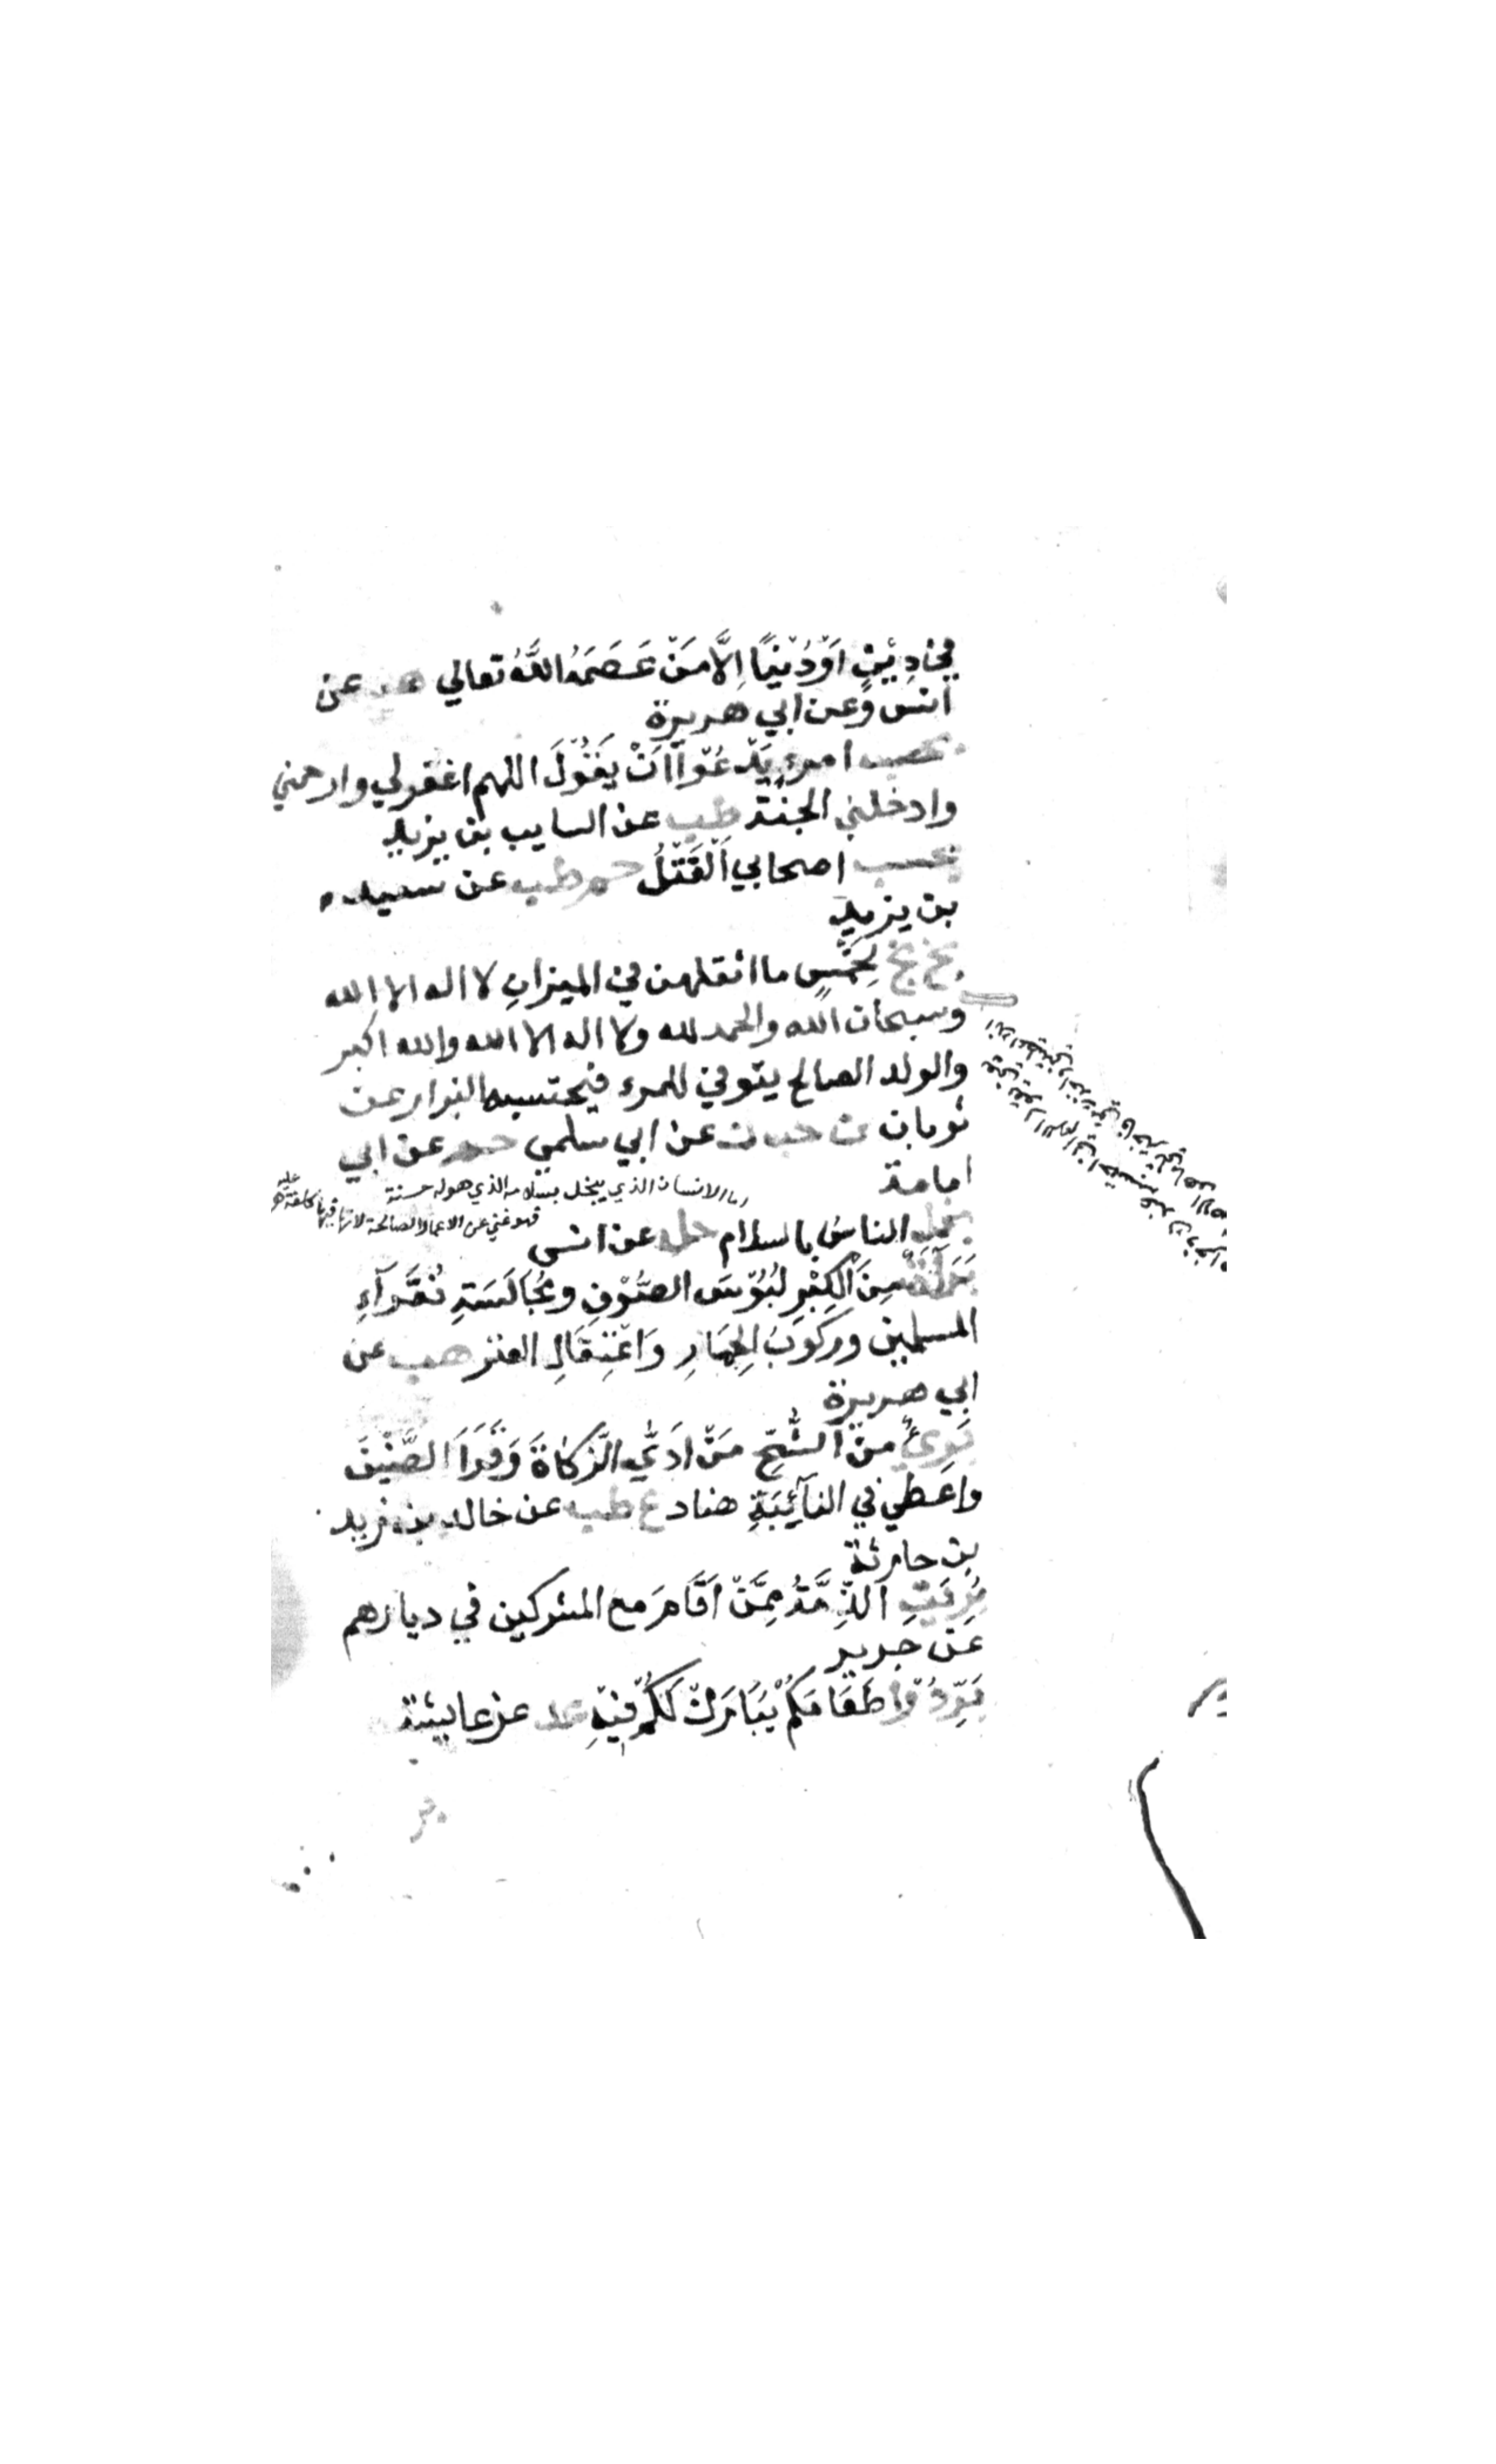 في دِيْنٍ اَوْدُنْيَا اِلَّا مَنْ عَصَمَهُ اللَّهُ تعالي هب عن
انس وعن ابي هريرة
بحسب امرءٍ يَدْعُوْا اَنْ يَقُوْلَ اللهم اغفرلي وارحمني
وادخلني الجنة طب عن السايب بن يزيد
بحسب اصحابي اَلْقَتْلُ حم طب عن سعيد
بن يزيد
بخ بخ لِخَمْسٍ ما اثقلهن في الميزانِ لا اله الا الله
وسبحان الله والحمد لله ولا اله الا الله والله اكبر
والولد الصالح يتوفي للمرء فيحتسبه البزار عن
ثوبان ن حب ك عن ابي سلمي حم عن ابي
امامة
اما الانسان الذي يبخل بسلامه الذي هوله حسنة
فهو غني عن الاعمال الصالحة لانها فيها كلفة عليه
بخل الناس بالسلام حل عن انس
بَرَآءَةٌ مِنَ اَلْكِبْرِ لُبُوْسَ الصُّوْفِ ومُجَالَسَةِ فُقَرَآءِ
المسلمين ورَكَوبُ الحِمَارِ وَاعْتِقَالِ العنز هب عن
ابي هريرة
بَرِئَ مِنَ الشُّحِّ مَنْ اَدَّيَ الزَّكَاةَ وَقَرَا الضَّيْفَ
واعطي في النآئِبَةِ هناد ع طب عن خالد بن زيد
بن حارثة
بَرِئَتِ الذِّمَّةُ مِمَّنْ اَقَامَ مع المشركين في ديارهم
عن جرير
بَرِّدُوْا طَعَامَكُمْ يُبَارَكْ لَكُمْ فِيْهِ عد عن عايشة